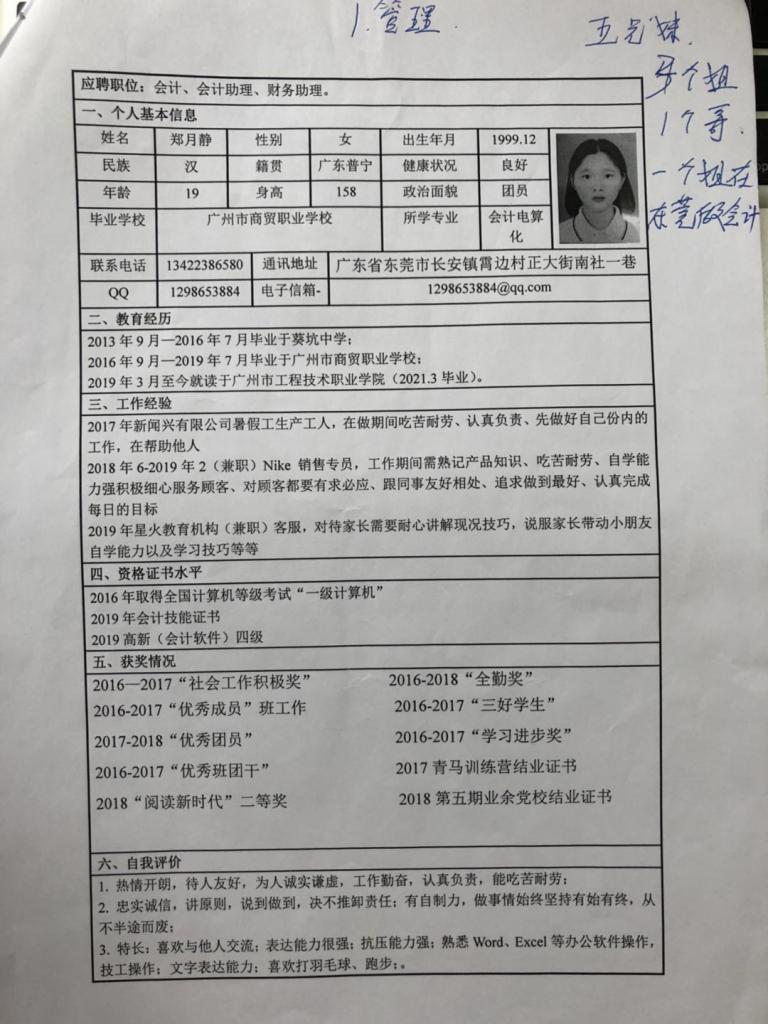 1.管理.
五兄妹.
个姐
1个哥.
一个姐在
东莞做会计
应聘职位：会计、会计助理、财务助理。
一、个人基本信息
姓名 郑月静 性别 女 出生年月 1999.12
民族 汉 籍贯 广东普宁 健康状况 良好
年龄 19 身高 158 政治面貌 团员
毕业学校 广州市商贸职业学校 所学专业 会计电算
化
联系电话 13422386580 通讯地址 广东省东莞市长安镇霄边村正大街南社一巷
QQ 1298653884 电子信箱- 1298653884@qq.com
二、教育经历
2013 年 9 月—2016 年 7 月毕业于葵坑中学；
2016 年 9 月—2019 年 7 月毕业于广州市商贸职业学校；
2019 年 3 月至今就读于广州市工程技术职业学院（2021.3 毕业）。
三、工作经验
2017 年新闻兴有限公司暑假工生产工人，在做期间吃苦耐劳、认真负责、先做好自己份内的
工作，在帮助他人
2018 年 6-2019 年 2（兼职）Nike 销售专员，工作期间需熟记产品知识、吃苦耐劳、自学能
力强积极细心服务顾客、对顾客都要有求必应、跟同事友好相处、追求做到最好、认真完成
每日的目标
2019 年星火教育机构（兼职）客服，对待家长需要耐心讲解现况技巧，说服家长带动小朋友
自学能力以及学习技巧等等
四、资格证书水平
2016 年取得全国计算机等级考试“一级计算机”
2019 年会计技能证书
2019 高新（会计软件）四级
五、获奖情况
2016—2017“社会工作积极奖” 2016-2018“全勤奖”
2016-2017“优秀成员”班工作 2016-2017“三好学生”
2017-2018“优秀团员” 2016-2017“学习进步奖”
2016-2017“优秀班团干” 2017 青马训练营结业证书
2018“阅读新时代”二等奖 2018 第五期业余党校结业证书
六、自我评价
1. 热情开朗，待人友好，为人诚实谦虚，工作勤奋，认真负责，能吃苦耐劳；
2. 忠实诚信，讲原则，说到做到，决不推卸责任；有自制力，做事情始终坚持有始有终，从
不半途而废；
3. 特长：喜欢与他人交流；表达能力很强；抗压能力强；熟悉 Word、Excel 等办公软件操作，
技工操作；文字表达能力；喜欢打羽毛球、跑步；。